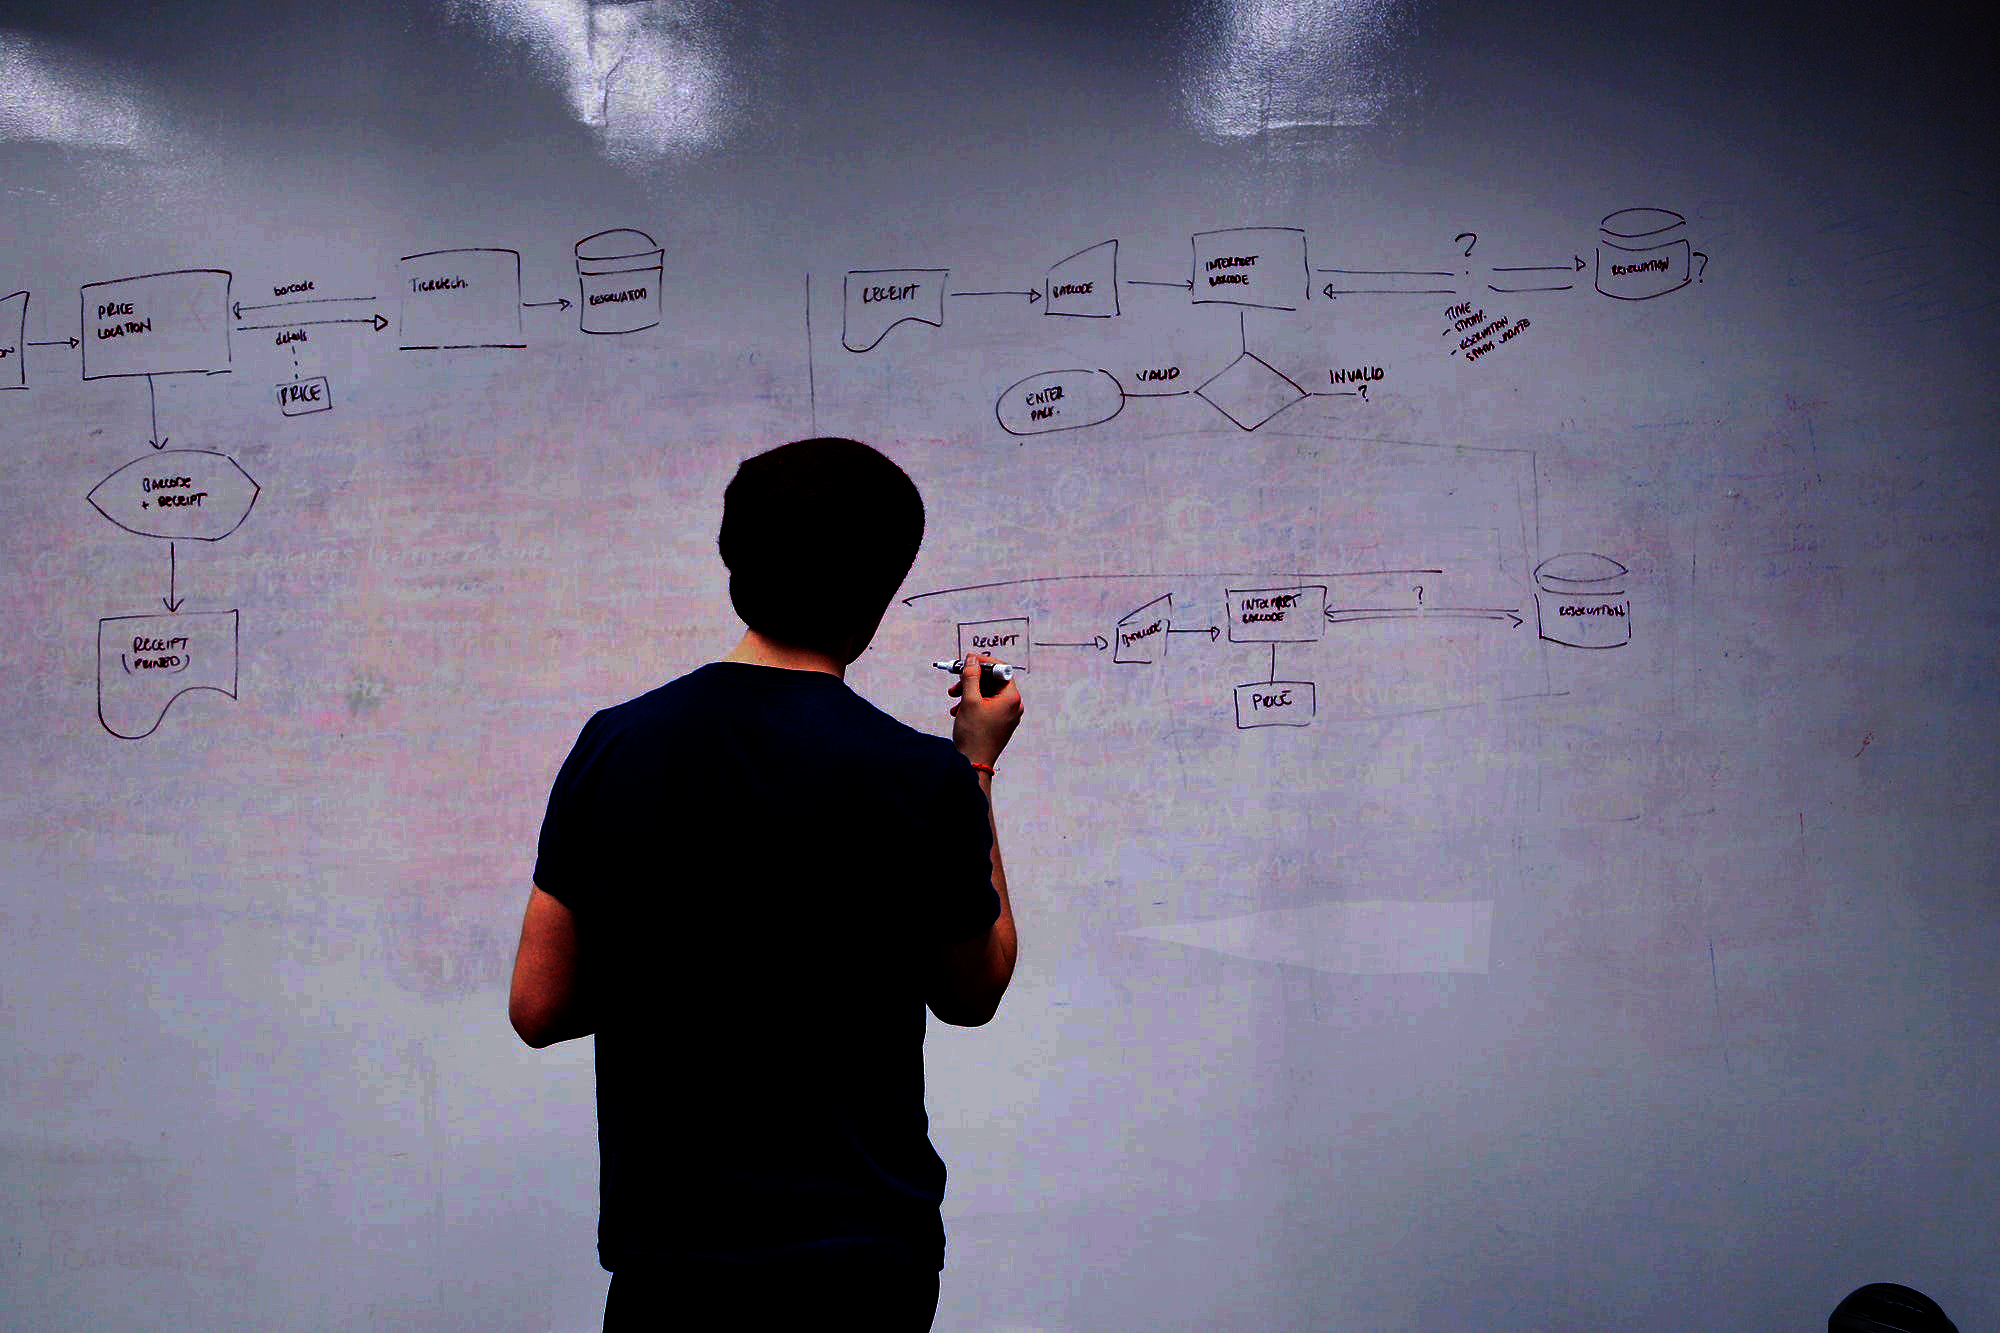 PRICE
LOCATION
barcode
details
PRICE
Ticketech.
RESERVATION
BARCODE
+ RECEIPT
RECEIPT
(PRINTED)
RECEIPT
BARCODE
INTERPRET
BARCODE
?
TIME
- STAMP.
- RESERVATION
STATUS UPDATE
RESERVATION
?
ENTER
PARK.
VALID
INVALID
?
RECEIPT
?
BARCODE
INTERPRET
BARCODE
?
RESERVATION
PRICE